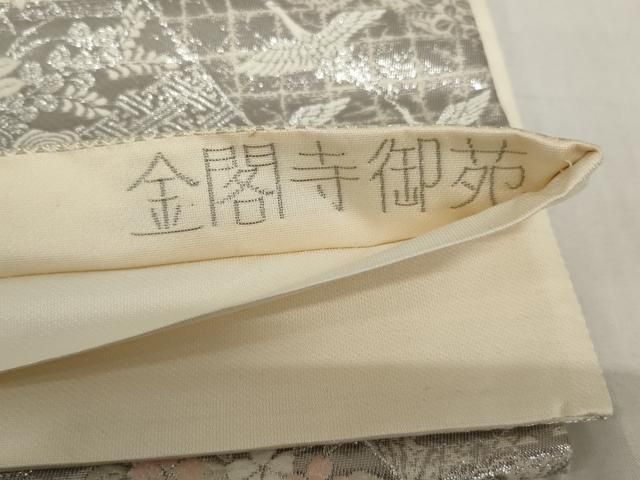 金閣寺御苑